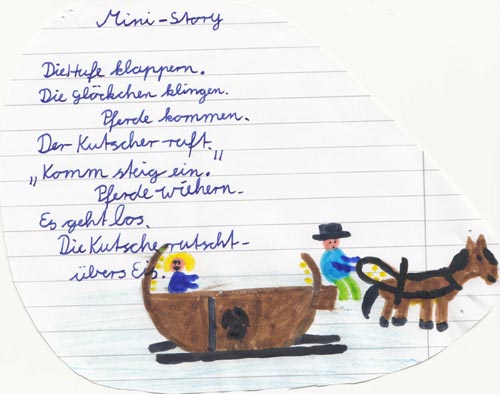 Mini-Story
Die Hufe klappern.
Die Glöckchen klingen.
Pferde kommen.
Der Kutscher ruft.
„Komm steig ein."
Pferde wiehern.
Es geht los.
Die Kutsche rutscht
übers Eis.